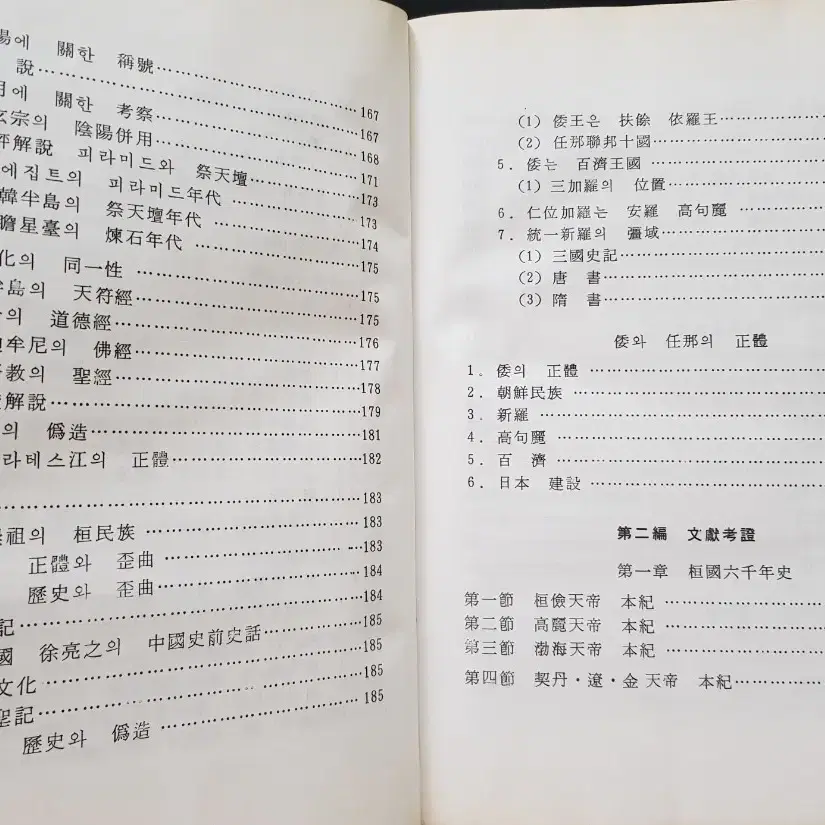 에 關한 稱號
說 167
에 關한 考察 167
玄宗의 陰陽倂用 168
評解說 피라미드와 祭天壇 171
에집트의 피라미드年代 173
韓半島의 祭天壇年代 173
瞻星臺의 煉石年代 174
化의 同一性 175
半島의 天符經 175
의 道德經 175
牟尼의 佛經 176
敎의 聖經 177
解說 178
의 僞造 179
라테스江의 正體 181
182
183
祖의 桓民族 183
正體와 歪曲 183
歷史와 歪曲 184
記 184
國 徐亮之의 中國史前史話 185
文化 185
聖記 185
歷史와 僞造
(1) 倭王은 扶餘 依羅王
(2) 任那聯邦十國
5. 倭는 百濟王國
(1) 三加羅의 位置
6. 仁位加羅는 安羅 高句麗
7. 統一新羅의 彊域
(1) 三國史記
(2) 唐 書
(3) 隋 書
倭와 任那의 正體
1. 倭의 正體
2. 朝鮮民族
3. 新羅
4. 高句麗
5. 百 濟
6. 日本 建設
第二編 文獻考證
第一章 桓國六千年史
第一節 桓儉天帝 本紀
第二節 高麗天帝 本紀
第三節 渤海天帝 本紀
第四節 契丹·遼·金 天帝 本紀